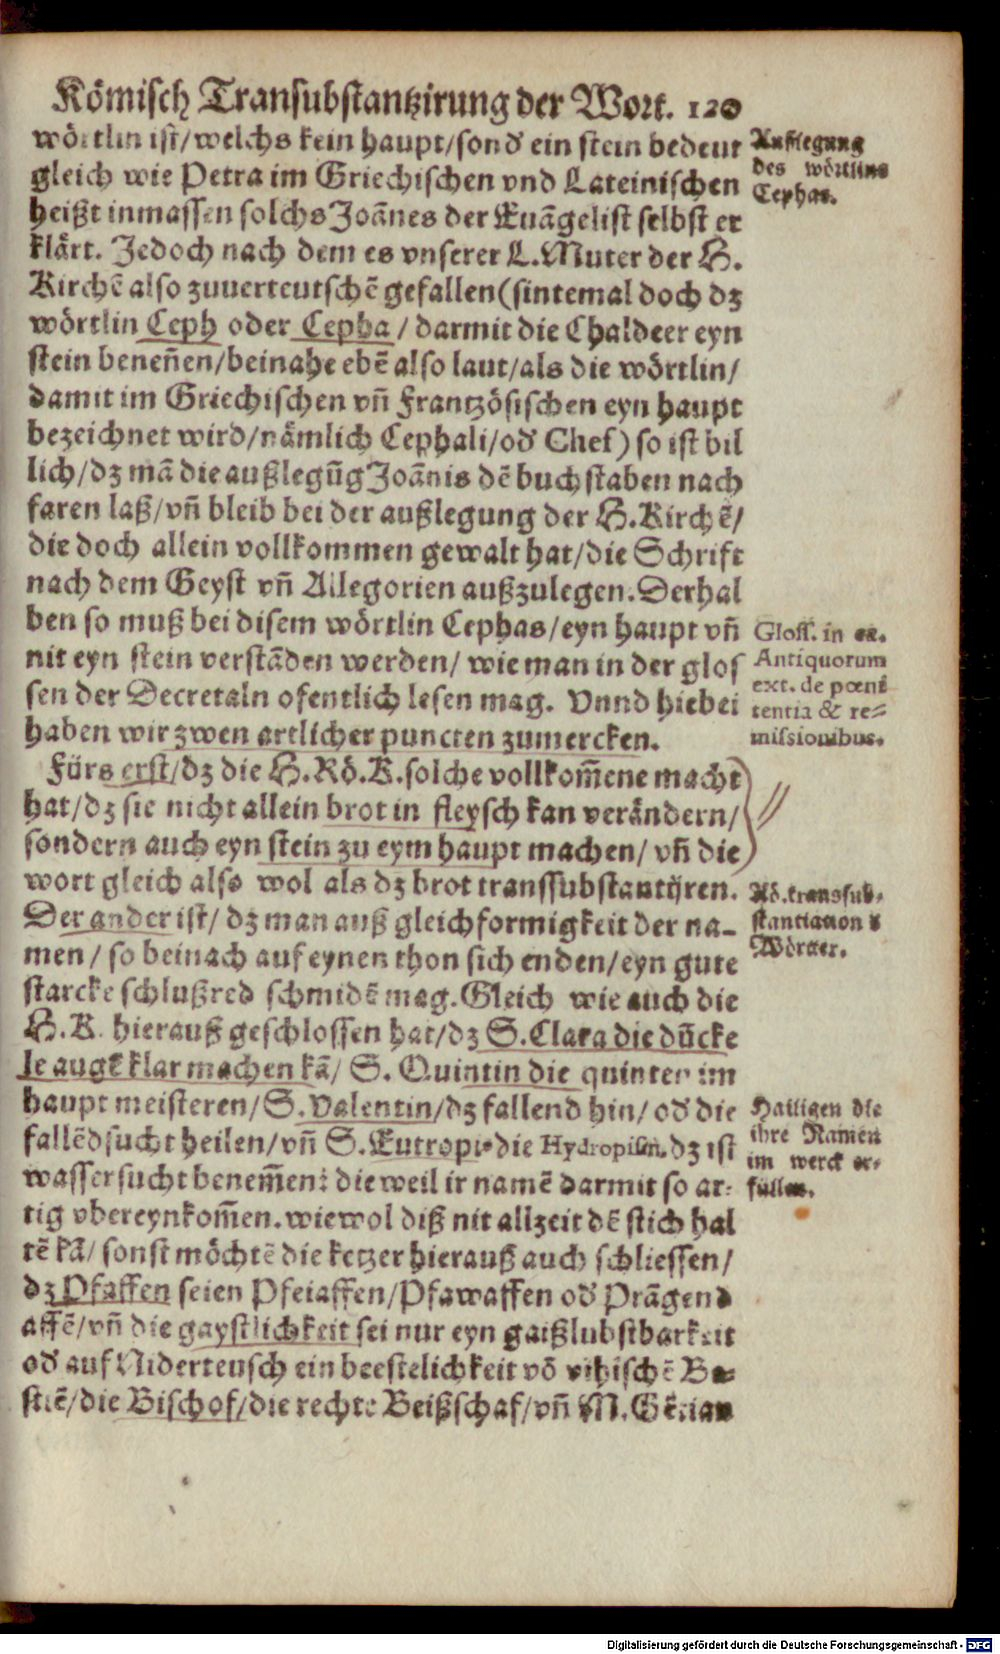 Römisch Transubstantzirung der Wort. 120
wörtlin ist/welchs kein haupt/sond̕ ein stein bedeut
gleich wie Petra im Griechischen vnd Lateinischen
heißt inmassen solchs Joãnes der Euãgelist selbst er
klärt. Jedoch nach dem es vnserer L.Muter der H.
Kirchẽ also zuuerteutschẽ gefallen(sintemal doch dz
wörtlin Ceph oder Cepha/darmit die Chaldeer eyn
stein beneñen/beinahe ebẽ also laut/als die wörtlin/
damit im Griechischen vñ Frantzösischen eyn haupt
bezeichnet wird/nämlich Cephali/od̕ Chef) so ist bil
lich/dz mã die außlegũg Joãnis dẽ buchstaben nach
faren laß/vñ bleib bei der außlegung der H.Kirchẽ/
die doch allein vollkommen gewalt hat/die Schrift
nach dem Geyst vñ Allegorien außzulegen.Derhal
ben so muß bei disem wörtlin Cephas/eyn haupt vñ
nit eyn stein verstãden werden/ wie man in der glos
sen der Decretaln ofentlich lesen mag. Vnnd hiebei
haben wir zwen artlicher puncten zumercken.
Fürs erst/dz die H.Rö.K.solche vollkom̃ene macht
hat/dz sie nicht allein brot in fleysch kan verändern/
sondern auch eyn stein zu eym haupt machen/ vñ die
wort gleich also wol als dz brot transsubstantijren.
Der ander ist/ dz man auß gleichformigkeit der na-
men/ so beinach auf eynen thon sich enden/eyn gute
starcke schlußred schmidẽ mag.Gleich wie auch die
H.K. hierauß geschlossen hat/dz S.Clara die dũcke
le augẽ klar machen kã/ S. Quintin die quinten im
haupt meisteren/S.Valentin/dz fallend hin/od̕ die
fallẽdsucht heilen/vñ S.Eutropi die Hydropism.dz ist
wassersucht benem̃en: die weil ir namẽ darmit so ar-
tig vbereynkom̃en.wiewol diß nit allzeit dẽ stich hal
tẽ kã/ sonst möchtẽ die ketzer hierauß auch schliessen/
dz Pfaffen seien Pfeiaffen/Pfawaffen od̕ Prãgend
affẽ/vñ die gaystlichkeit sei nur eyn gaißlubstbarkeit
od̕ auf Niderteusch ein beestelichkeit võ vihischẽ Be-
stiẽ/die Bischof/die rechte Beißschaf/vñ M.
Außlegung
des wörtlins
Cephas.
Gloss. in
Antiquorum
ext. de pœni
tentia & re-
missionibus.
Rö.transsub-
stantiation d̕
Wörter.
Hailigen die
ihre Namen
im werck er-
füllen.
Digitalisierung gefördert durch die Deutsche Forschungsgemeinschaft - DFG